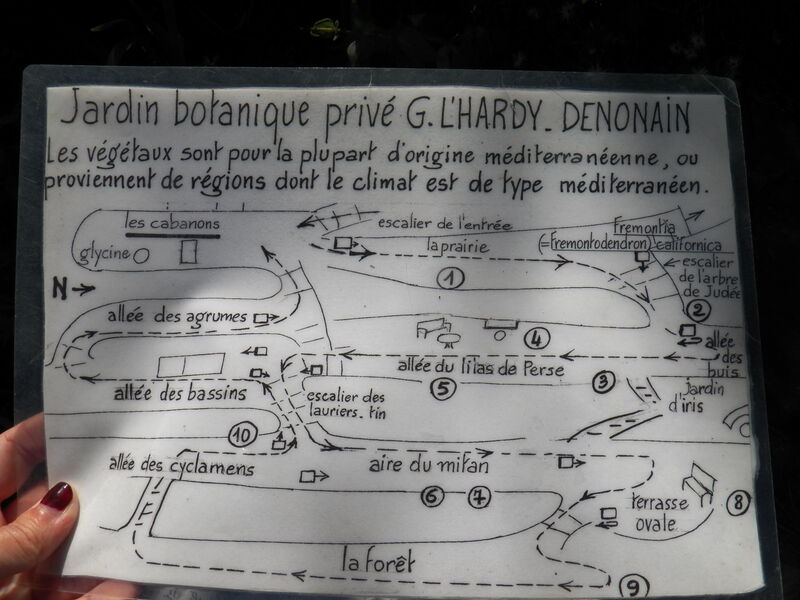 Jardin botanique privé G. L'HARDY_DENONAIN
Les végétaux sont pour la plupart d'origine méditerranéenne, ou
proviennent de régions dont le climat est de type méditerranéen.
les cabanons
escalier de l'entrée
Fremontia
(=Fremontodendron) californica
glycine
la prairie
escalier
de l'arbre
de Judée
N
1
2
allée des agrumes
4
allée
des
buis
allée du lilas de Perse
3
5
allée des bassins
escalier des
lauriers-tin
jardin
d'iris
10
allée des cyclamens
aire du mitan
6
7
terrasse
ovale
8
la forêt
9